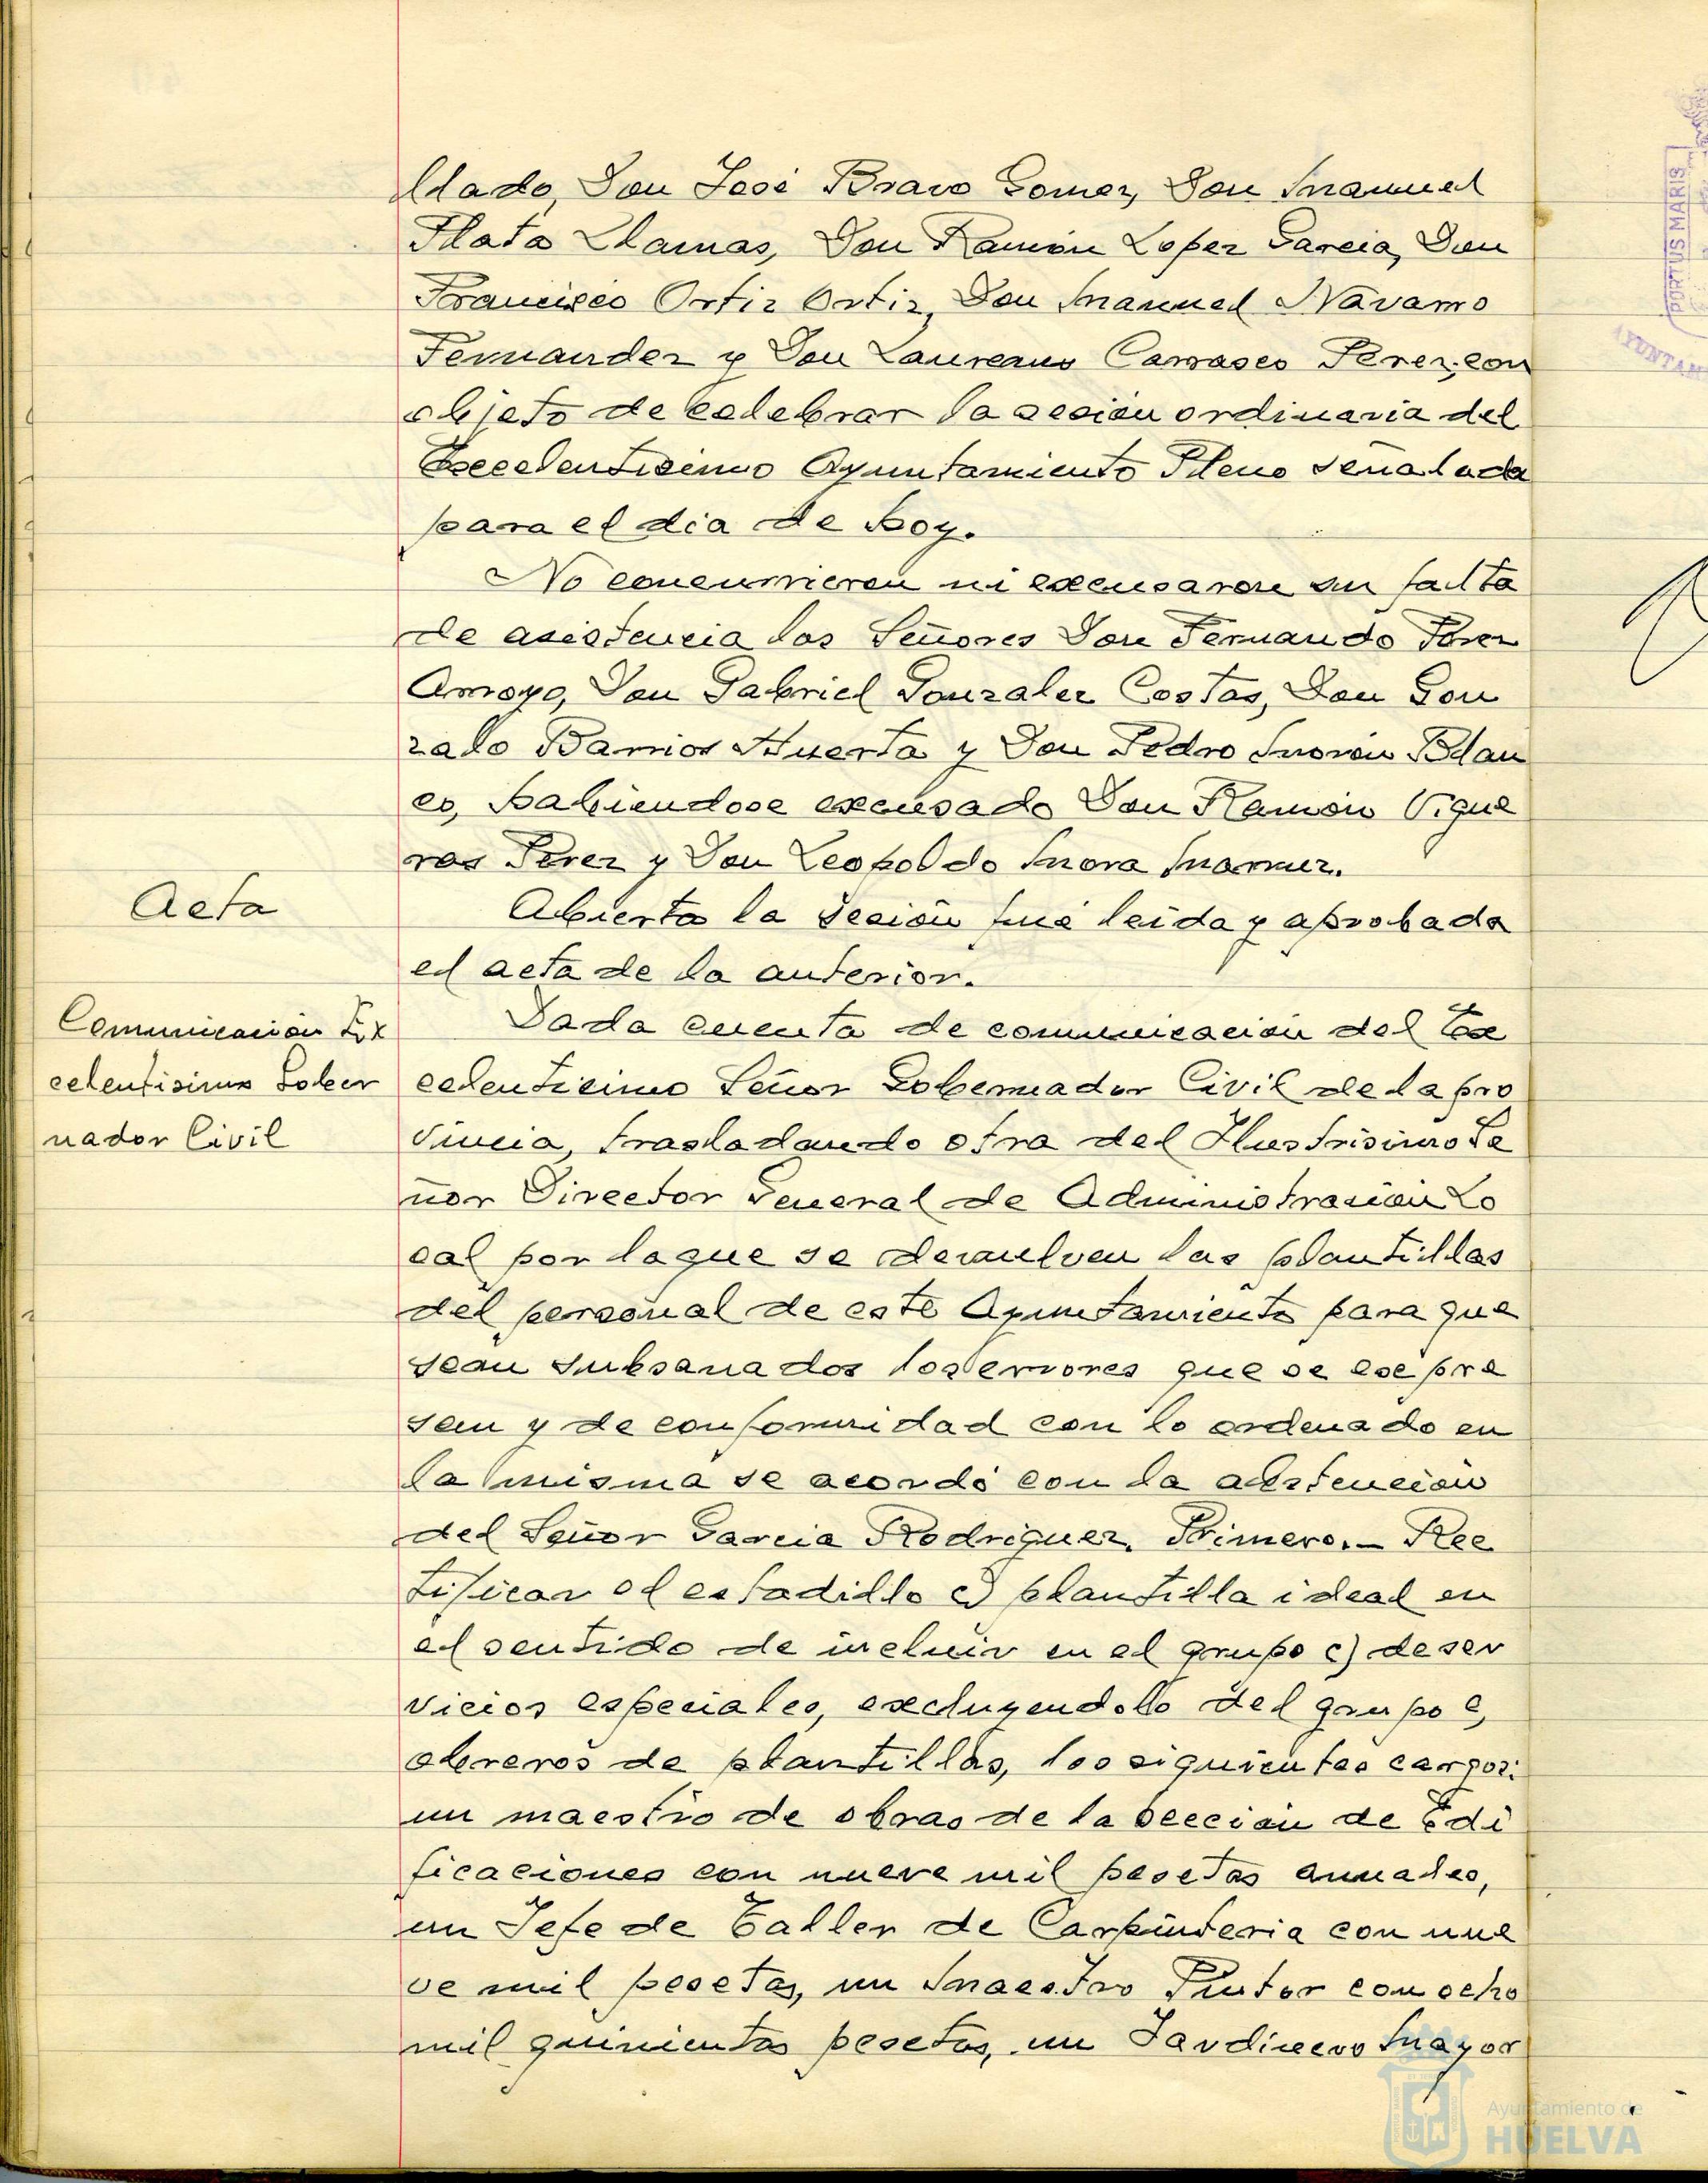 llado, Don José Bravo Gomez, Don Manuel
Plata Llamas, Don Ramón Lopez Garcia, Don
Francisco Ortiz Ortiz, Don Manuel Navarro
Fernandez y Don Laureano Carrasco Perez, con
objeto de celebrar la sesión ordinaria del
Excelentisimo Ayuntamiento Pleno señalada
para el dia de hoy.
No concurrieron ni excusaron su falta
de asistencia los Señores Don Fernando Perez
Arroyo, Don Gabriel Gonzalez Costas, Don Gon
zalo Barrios Huerta y Don Pedro Morón Blan
co, habiendose excusado Don Ramón Vigue
ras Perez y Don Leopoldo Mora
Acta
Abierta la sesión fué leida y aprobada
el acta de la anterior.
Comunicación Ex
celentisimo Gober
nador Civil
Dada cuenta de comunicación del Ex
celentisimo Señor Gobernador Civil de la pro
vincia, trasladando otra del Ilustrisimo Se
ñor Director General de Administración Lo
cal por la que se devuelven las plantillas
del personal de este Ayuntamiento para que
sean subsanados los errores que se expre
san y de conformidad con lo ordenado en
la misma se acordó con la abstención
del Señor Garcia Rodriguez. Primero.- Rec
tificar el estadillo c) plantilla ideal en
el sentido de incluir en el grupo c) de ser
vicios especiales, excluyendolo del grupo e,
obreros de plantillas, los siguientes cargos:
un maestro de obras de la seccion de Edi
ficaciones con nueve mil pesetas anuales,
un Jefe de Taller de Carpinteria con nue
ve mil pesetas, un Maestro Pintor con ocho
mil quinientas pesetas, un Jardinero Mayor
PORTUS MARIS
AYUNTAM
Ayuntamiento de
HUELVA